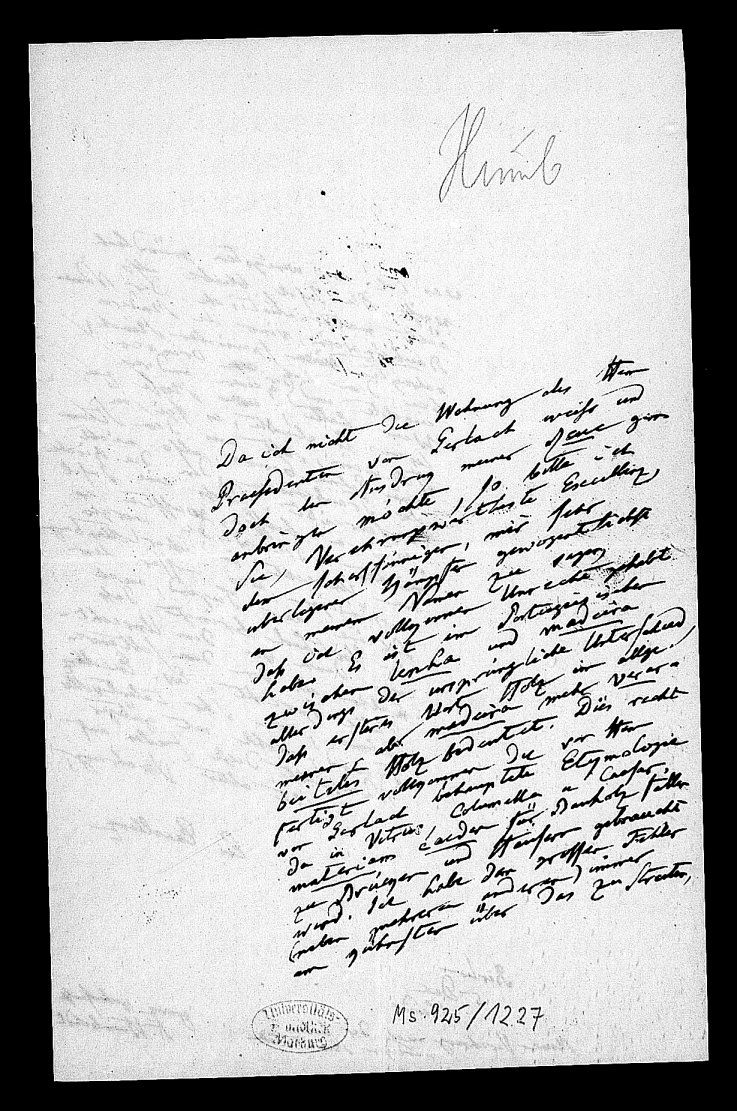 Humb
Da ich nicht die Wohnung des Herrn
Praesidenten von Gerlach weiss und
doch den Ausdruck meiner Reue gern
anbringen möchte, so bitte ich
Sie, Verehrungswertheste Excellenz,
dem scharfsinnigen, mir sehr
überlegenen Kämpfer gewogentlichst
in meinem Namen zu sagen
daß ich vollkommen Unrecht gehabt
habe. Es ist im Portugiesischen
zwischen lenha und madeira
allerdings der ursprüngliche Unterschied,
daß ersteres Wort Holz im allge-
meinen, aber madeira mehr verar-
beitetes Holz bedeutet. Dies recht
fertigt vollkommen die von Herrn
von Gerlach behauptete Etymologie
da in Vitruv, Columella u Caesar
materiam caedere für Bauholz fällen
zu Brücken und Häusern gebraucht
wird. Ich habe den grossen Fehler
(neben mehreren anderen) immer
am über das zu streiten,
Universitäts-
Bibliothek
Marburg
Ms. 925/1227